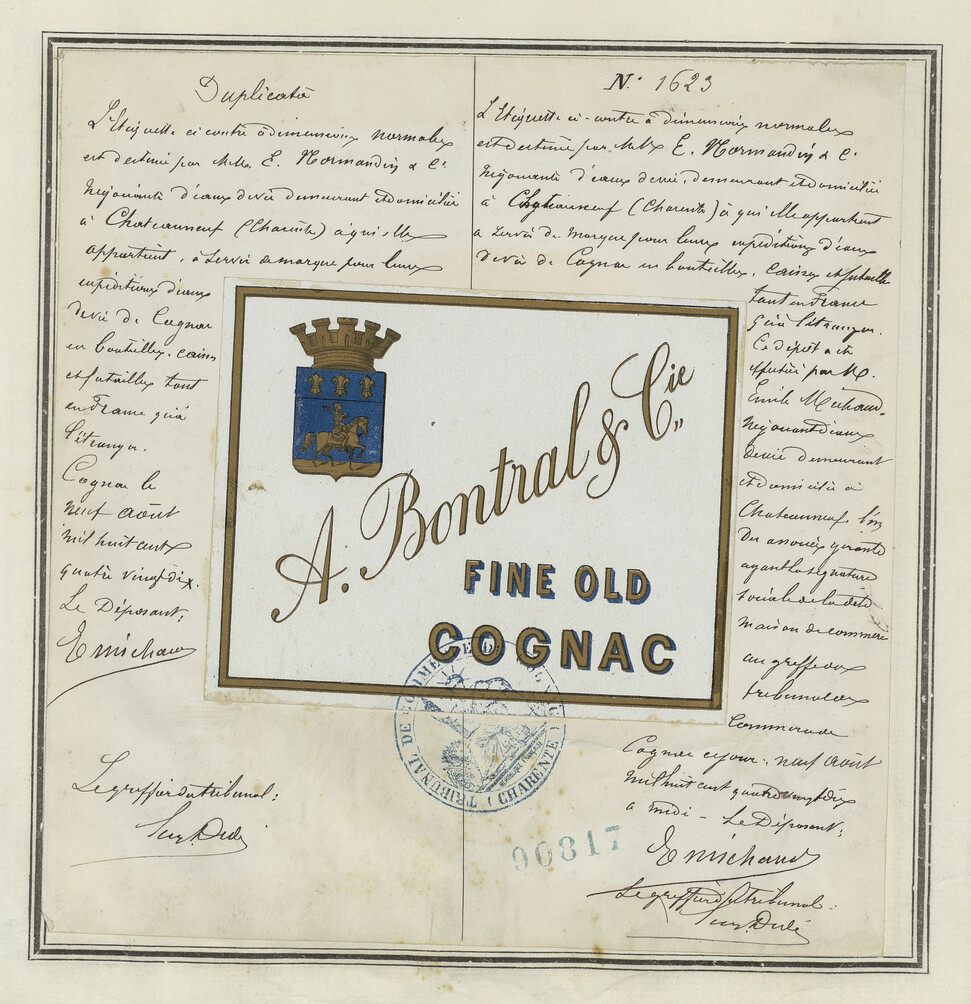 Duplicata
L'Etiquette ci contre à dimensions normales
est destinée par M.M. E. Normandin & Cie
Négociants d'eaux de vie demeurant et domiciliés
à Chateauneuf (Charente) à qui elle
appartient, à servir de marque pour leurs
expéditions d'eaux
de vie de Cognac
en bouteilles, caisses
et futailles tant
en France qu'à
l'étranger.
Cognac le
neuf Août
mil huit cent
quatre vingt dix.
Le Déposant,
E Michaud
Le greffier du tribunal:
N° 1623
L'Etiquette ci-contre à dimensions normales
est destinée par M.M. E. Normandin & Cie
Négociants d'eaux de vie, demeurant et domiciliés
à Chateauneuf (Charente) à qui elle appartient
à servir de marque pour leurs expéditions d'eaux
de vie de Cognac en bouteilles, caisses et futailles
tant en France
qu'à l'étranger.
Ce dépôt a été
effectué par M.
Emile Michaud,
Négociant d'eaux
de vie demeurant
et domicilié à
Chateauneuf, l'un
des associés gérants
ayant la signature
sociale de la dite
maison de commerce
au greffe du
tribunal de
Commerce de
Cognac ce jour, neuf Août
mil huit cent quatre vingt dix
à midi – Le Déposant;
E Michaud
Le greffier du tribunal:
A. Bontral & Cie
FINE OLD
COGNAC
TRIBUNAL DE COMMERCE DE COGNAC (CHARENTE)
RÉPUBLIQUE FRANÇAISE
90817